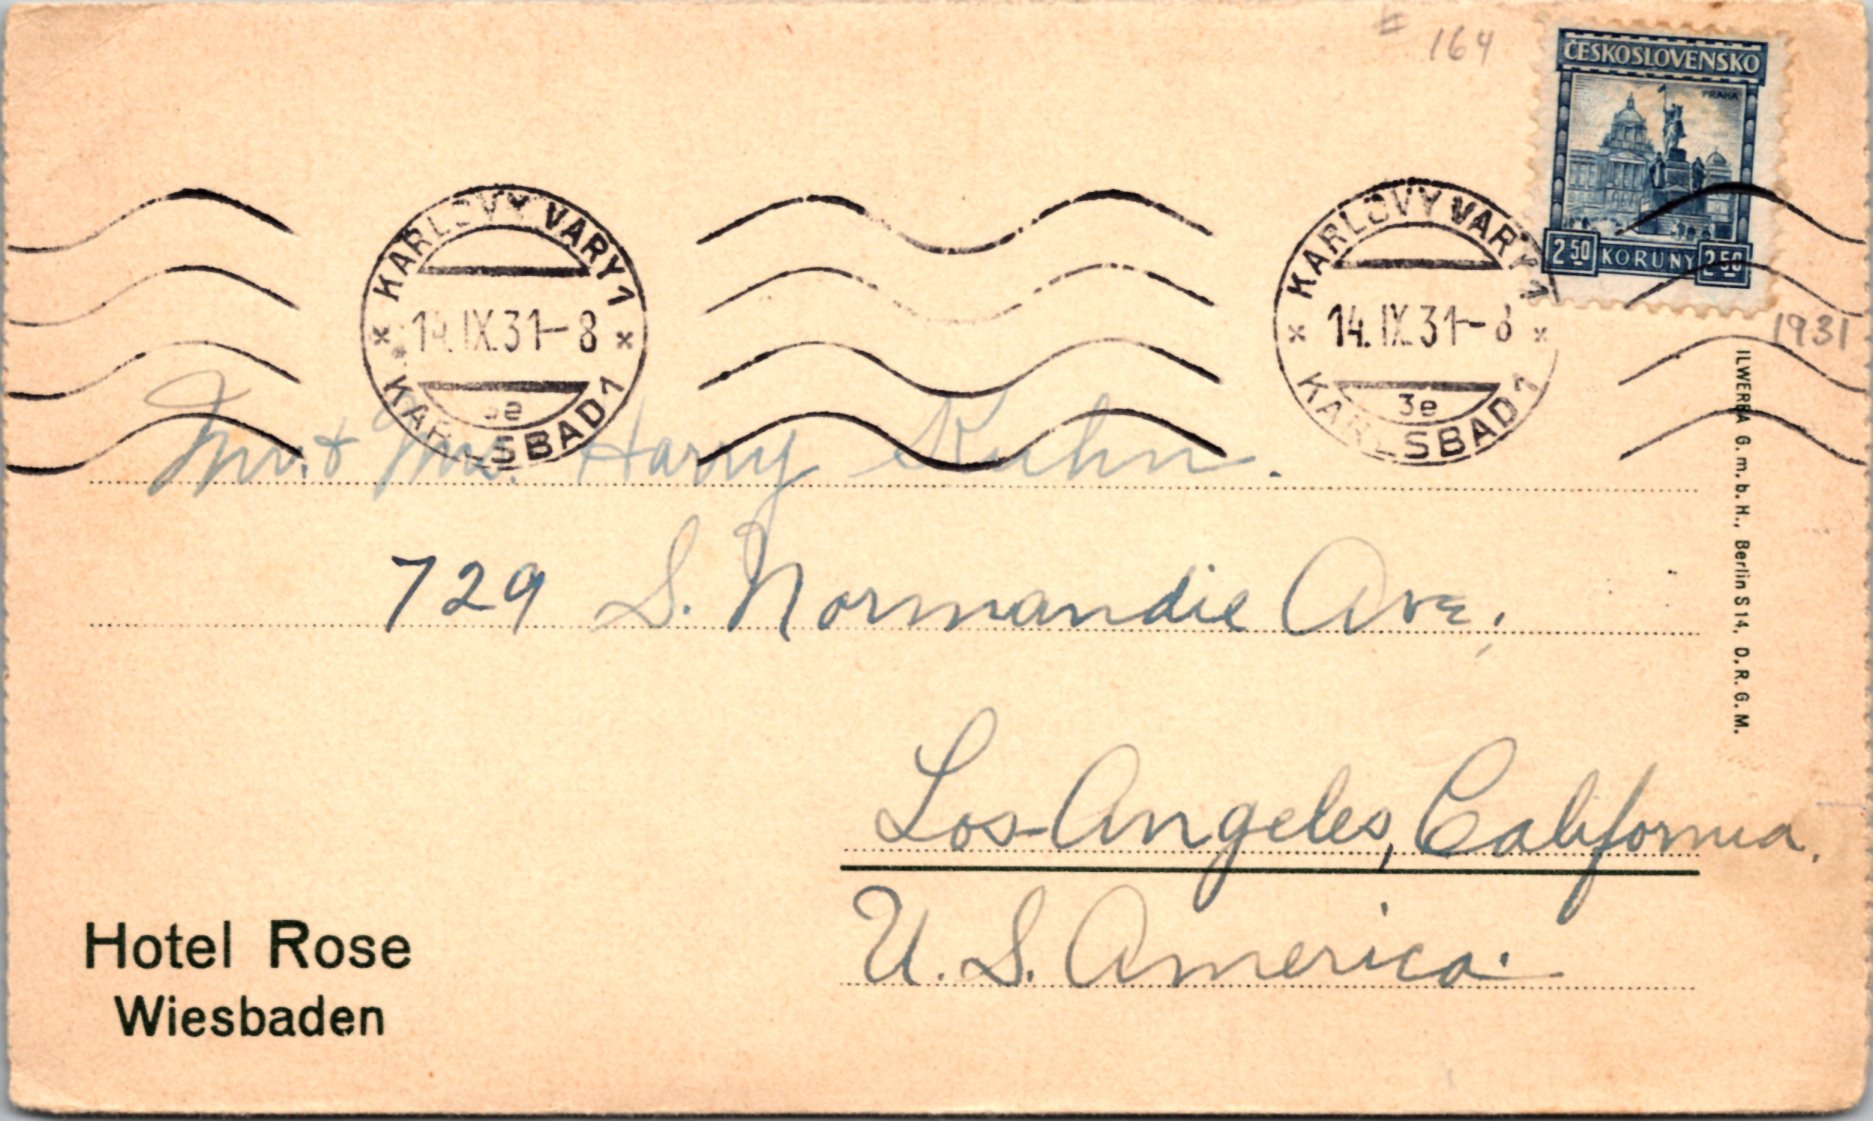 # 164
ČESKOSLOVENSKO
PRAHA
2 50 KORUNY 2 50
KARLOVY VARY 1
14.IX.31-8
3e
KARLSBAD 1
KARLOVY VARY 1
14.IX.31-8
3e
KARLSBAD 1
1931
Mr. & Mrs. Harry Kuhn.
729 S. Normandie Ave,
Los Angeles, California.
U. S. America.
Hotel Rose
Wiesbaden
ILWERBA G. m. b. H., Berlin S 14. D. R. G. M.